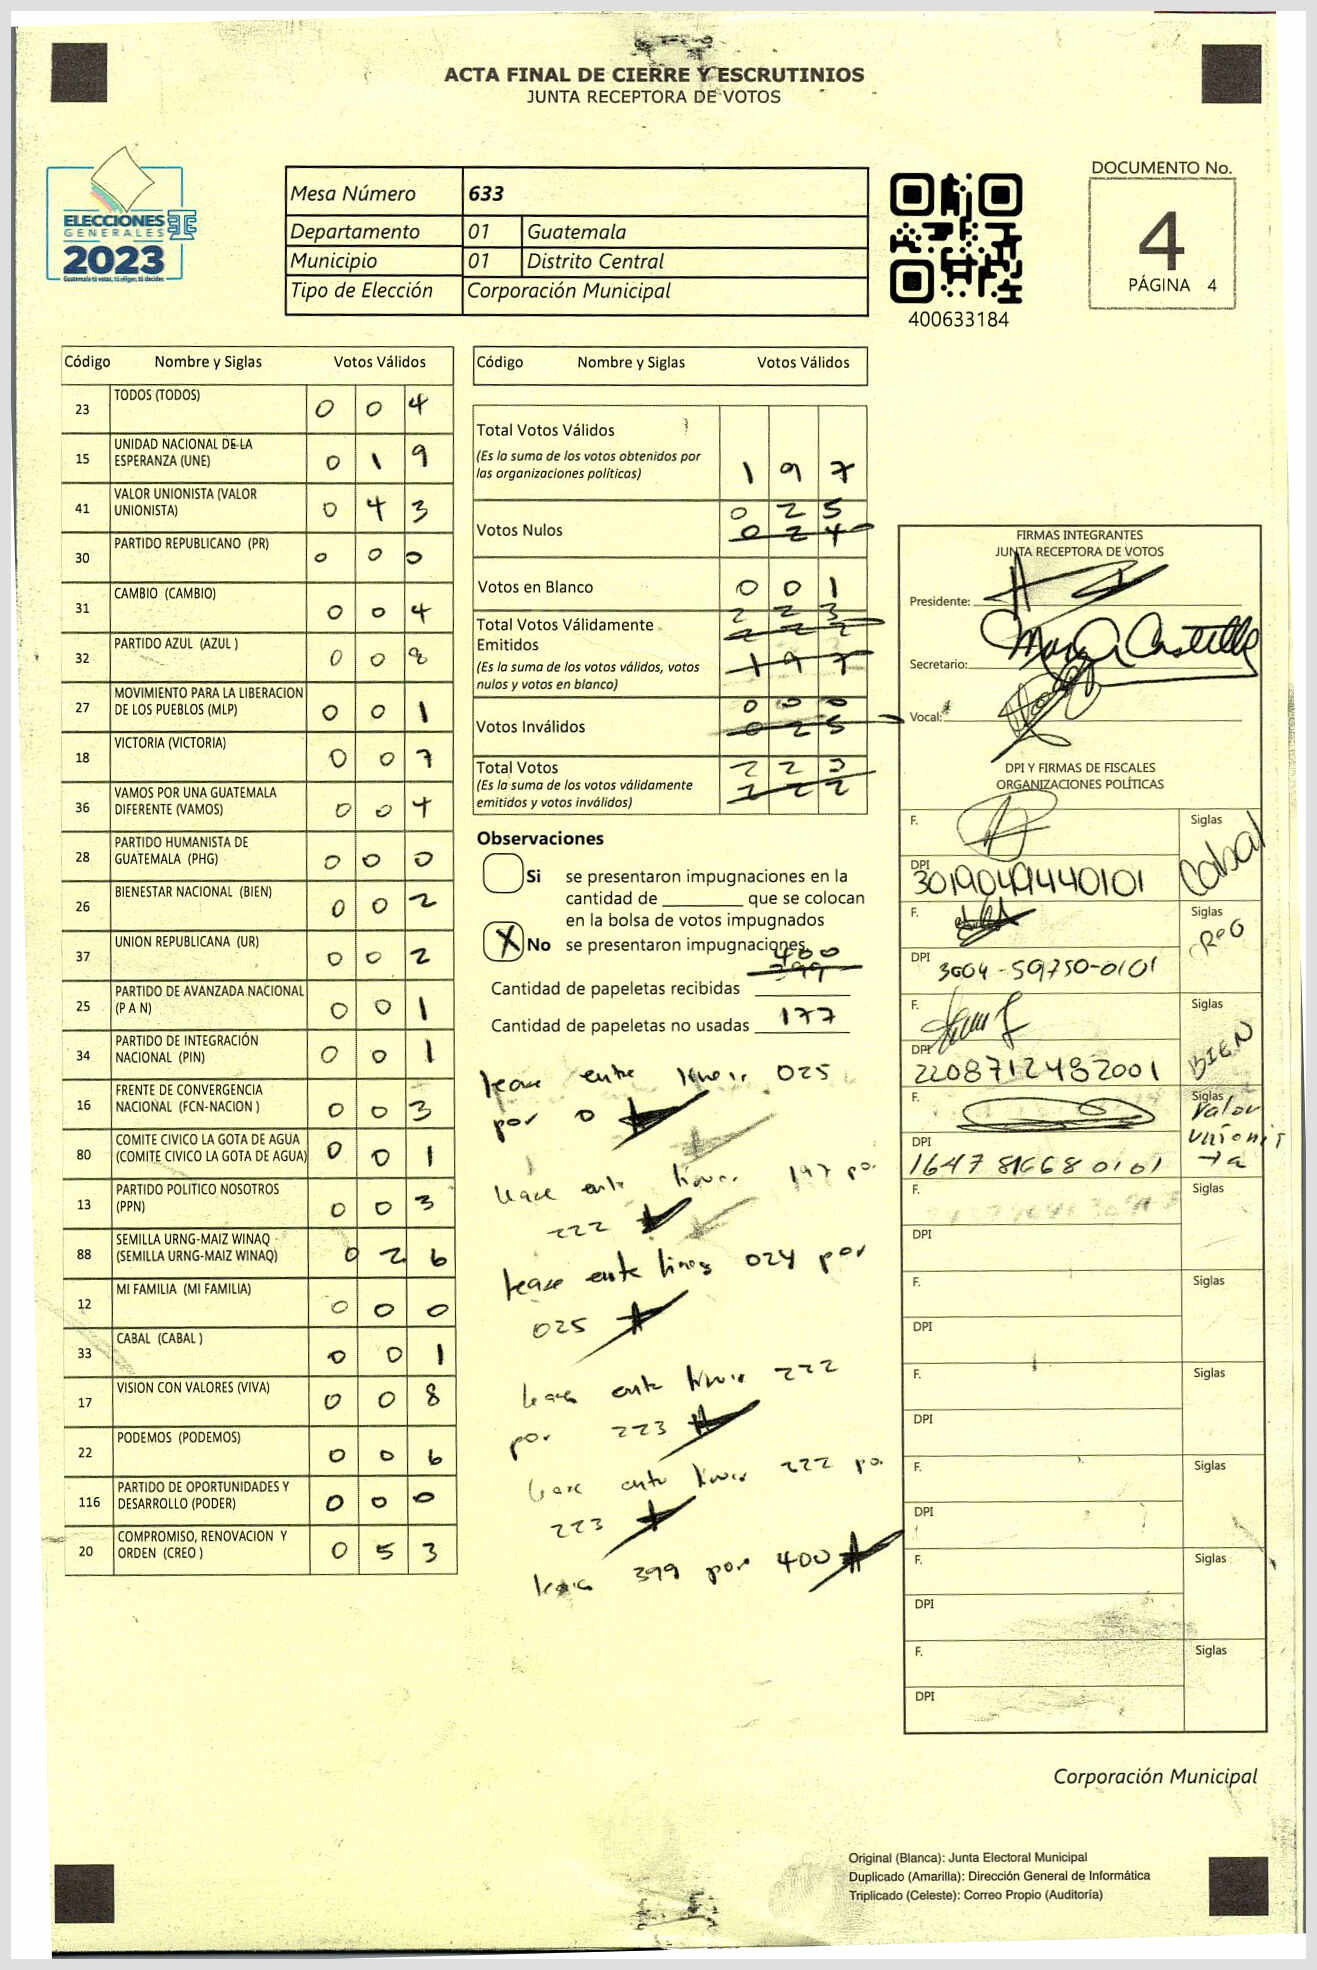 ACTA FINAL DE CIERRE Y ESCRUTINIOS
JUNTA RECEPTORA DE VOTOS
ELECCIONES
GENERALES
2023
Guatemala tú votas, tú eliges, tú decides
Mesa Número 633
Departamento 01 Guatemala
Municipio 01 Distrito Central
Tipo de Elección Corporación Municipal
400633184
DOCUMENTO No.
4
PÁGINA 4
Código Nombre y Siglas Votos Válidos
23 TODOS (TODOS) 0 0 4
15 UNIDAD NACIONAL DE LA ESPERANZA (UNE) 0 1 9
41 VALOR UNIONISTA (VALOR UNIONISTA) 0 4 3
30 PARTIDO REPUBLICANO (PR) 0 0 0
31 CAMBIO (CAMBIO) 0 0 4
32 PARTIDO AZUL (AZUL ) 0 0 8
27 MOVIMIENTO PARA LA LIBERACION DE LOS PUEBLOS (MLP) 0 0 1
18 VICTORIA (VICTORIA) 0 0 7
36 VAMOS POR UNA GUATEMALA DIFERENTE (VAMOS) 0 0 4
28 PARTIDO HUMANISTA DE GUATEMALA (PHG) 0 0 0
26 BIENESTAR NACIONAL (BIEN) 0 0 2
37 UNION REPUBLICANA (UR) 0 0 2
25 PARTIDO DE AVANZADA NACIONAL (P A N) 0 0 1
34 PARTIDO DE INTEGRACIÓN NACIONAL (PIN) 0 0 1
16 FRENTE DE CONVERGENCIA NACIONAL (FCN-NACION ) 0 0 3
80 COMITE CIVICO LA GOTA DE AGUA (COMITE CIVICO LA GOTA DE AGUA) 0 0 1
13 PARTIDO POLITICO NOSOTROS (PPN) 0 0 3
88 SEMILLA URNG-MAIZ WINAQ (SEMILLA URNG-MAIZ WINAQ) 0 2 6
12 MI FAMILIA (MI FAMILIA) 0 0 0
33 CABAL (CABAL ) 0 0 1
17 VISION CON VALORES (VIVA) 0 0 8
22 PODEMOS (PODEMOS) 0 0 6
116 PARTIDO DE OPORTUNIDADES Y DESARROLLO (PODER) 0 0 0
20 COMPROMISO, RENOVACION Y ORDEN (CREO ) 0 5 3
Código Nombre y Siglas Votos Válidos
Total Votos Válidos
(Es la suma de los votos obtenidos por
las organizaciones políticas) 1 9 7
0 2 5
Votos Nulos 0 2 4
Votos en Blanco 0 0 1
2 2 3
Total Votos Válidamente 2 2 2
Emitidos
(Es la suma de los votos válidos, votos 1 9 7
nulos y votos en blanco)
0 0 0
Votos Inválidos 0 2 5
Total Votos 2 2 3
(Es la suma de los votos válidamente 2 2 2
emitidos y votos inválidos)
Observaciones
Si se presentaron impugnaciones en la
cantidad de ________ que se colocan
en la bolsa de votos impugnados
X No se presentaron impugnaciones
400
399
Cantidad de papeletas recibidas
Cantidad de papeletas no usadas 177
lease entre lineas 025
por 0
lease ente lineas 197 po.
222
lease ente lineas 024 por
025
lease ente lineas 222
por 223
lease ente lineas 222 po.
223
lease 399 por 400
FIRMAS INTEGRANTES
JUNTA RECEPTORA DE VOTOS
Presidente:
Secretario:
Vocal:
DPI Y FIRMAS DE FISCALES
ORGANIZACIONES POLÍTICAS
F. Siglas
Cabal
DPI
F. Siglas
CREO
DPI 3004-59750-0101
F. Siglas
BIEN
DPI
2208712482001
F. Siglas
Valor
unionis
ta
DPI
1647 81668 0101
F. Siglas
DPI
F. Siglas
DPI
F. Siglas
DPI
F. Siglas
DPI
F. Siglas
DPI
F. Siglas
DPI
Corporación Municipal
Original (Blanca): Junta Electoral Municipal
Duplicado (Amarilla): Dirección General de Informática
Triplicado (Celeste): Correo Propio (Auditoría)